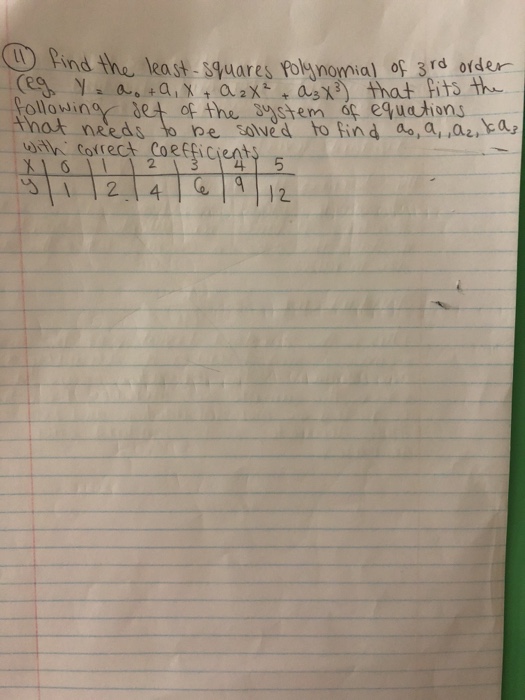 11 Find the least-squares polynomial of 3rd order
(eg. y = a₀ + a₁x + a₂x² + a₃x³) that fits the
following set of the system of equations
that needs to be solved to find a₀, a₁, a₂, & a₃
with correct coefficients
x | 0 | 1 | 2 | 3 | 4 | 5
y | 1 | 2 | 4 | 6 | 9 | 12